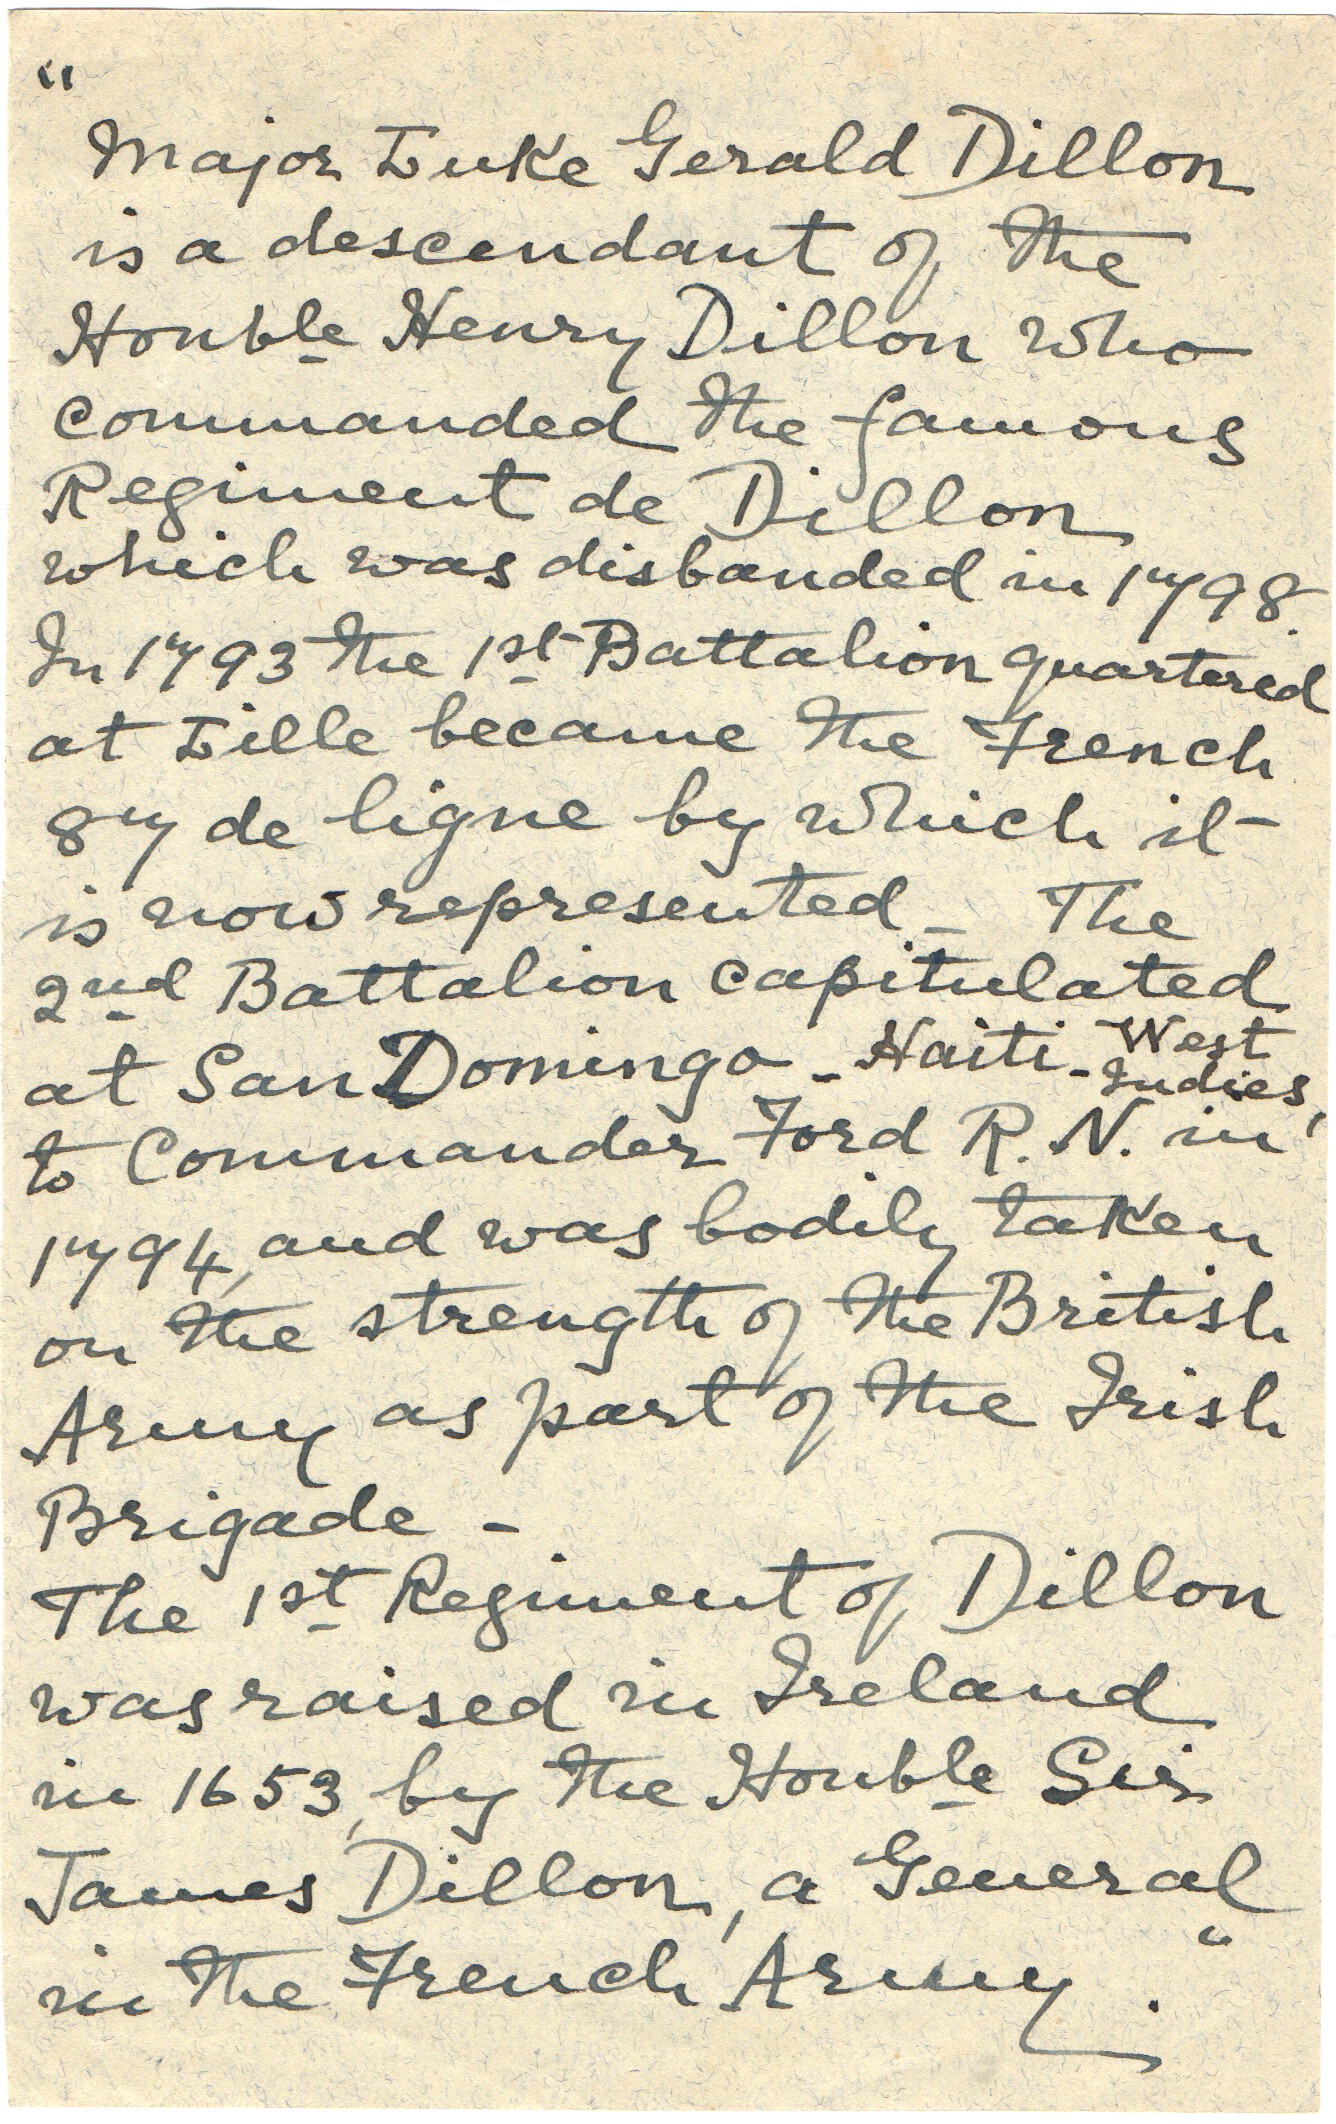 "
Major Luke Gerald Dillon
is a descendant of the
Honble Henry Dillon who
commanded the famous
Regiment de Dillon
which was disbanded in 1798.
In 1793 the 1st Battalion quartered
at Lille became the French
87 de ligne by which it
is now represented – The
2nd Battalion capitulated
at San Domingo - Haiti - West Indies,
to Commander Ford R.N. in
1794, and was bodily taken
on the strength of the British
Army as part of the Irish
Brigade –
The 1st Regiment of Dillon
was raised in Ireland
in 1653, by the Honble Sir
James Dillon, a General
in the French Army."